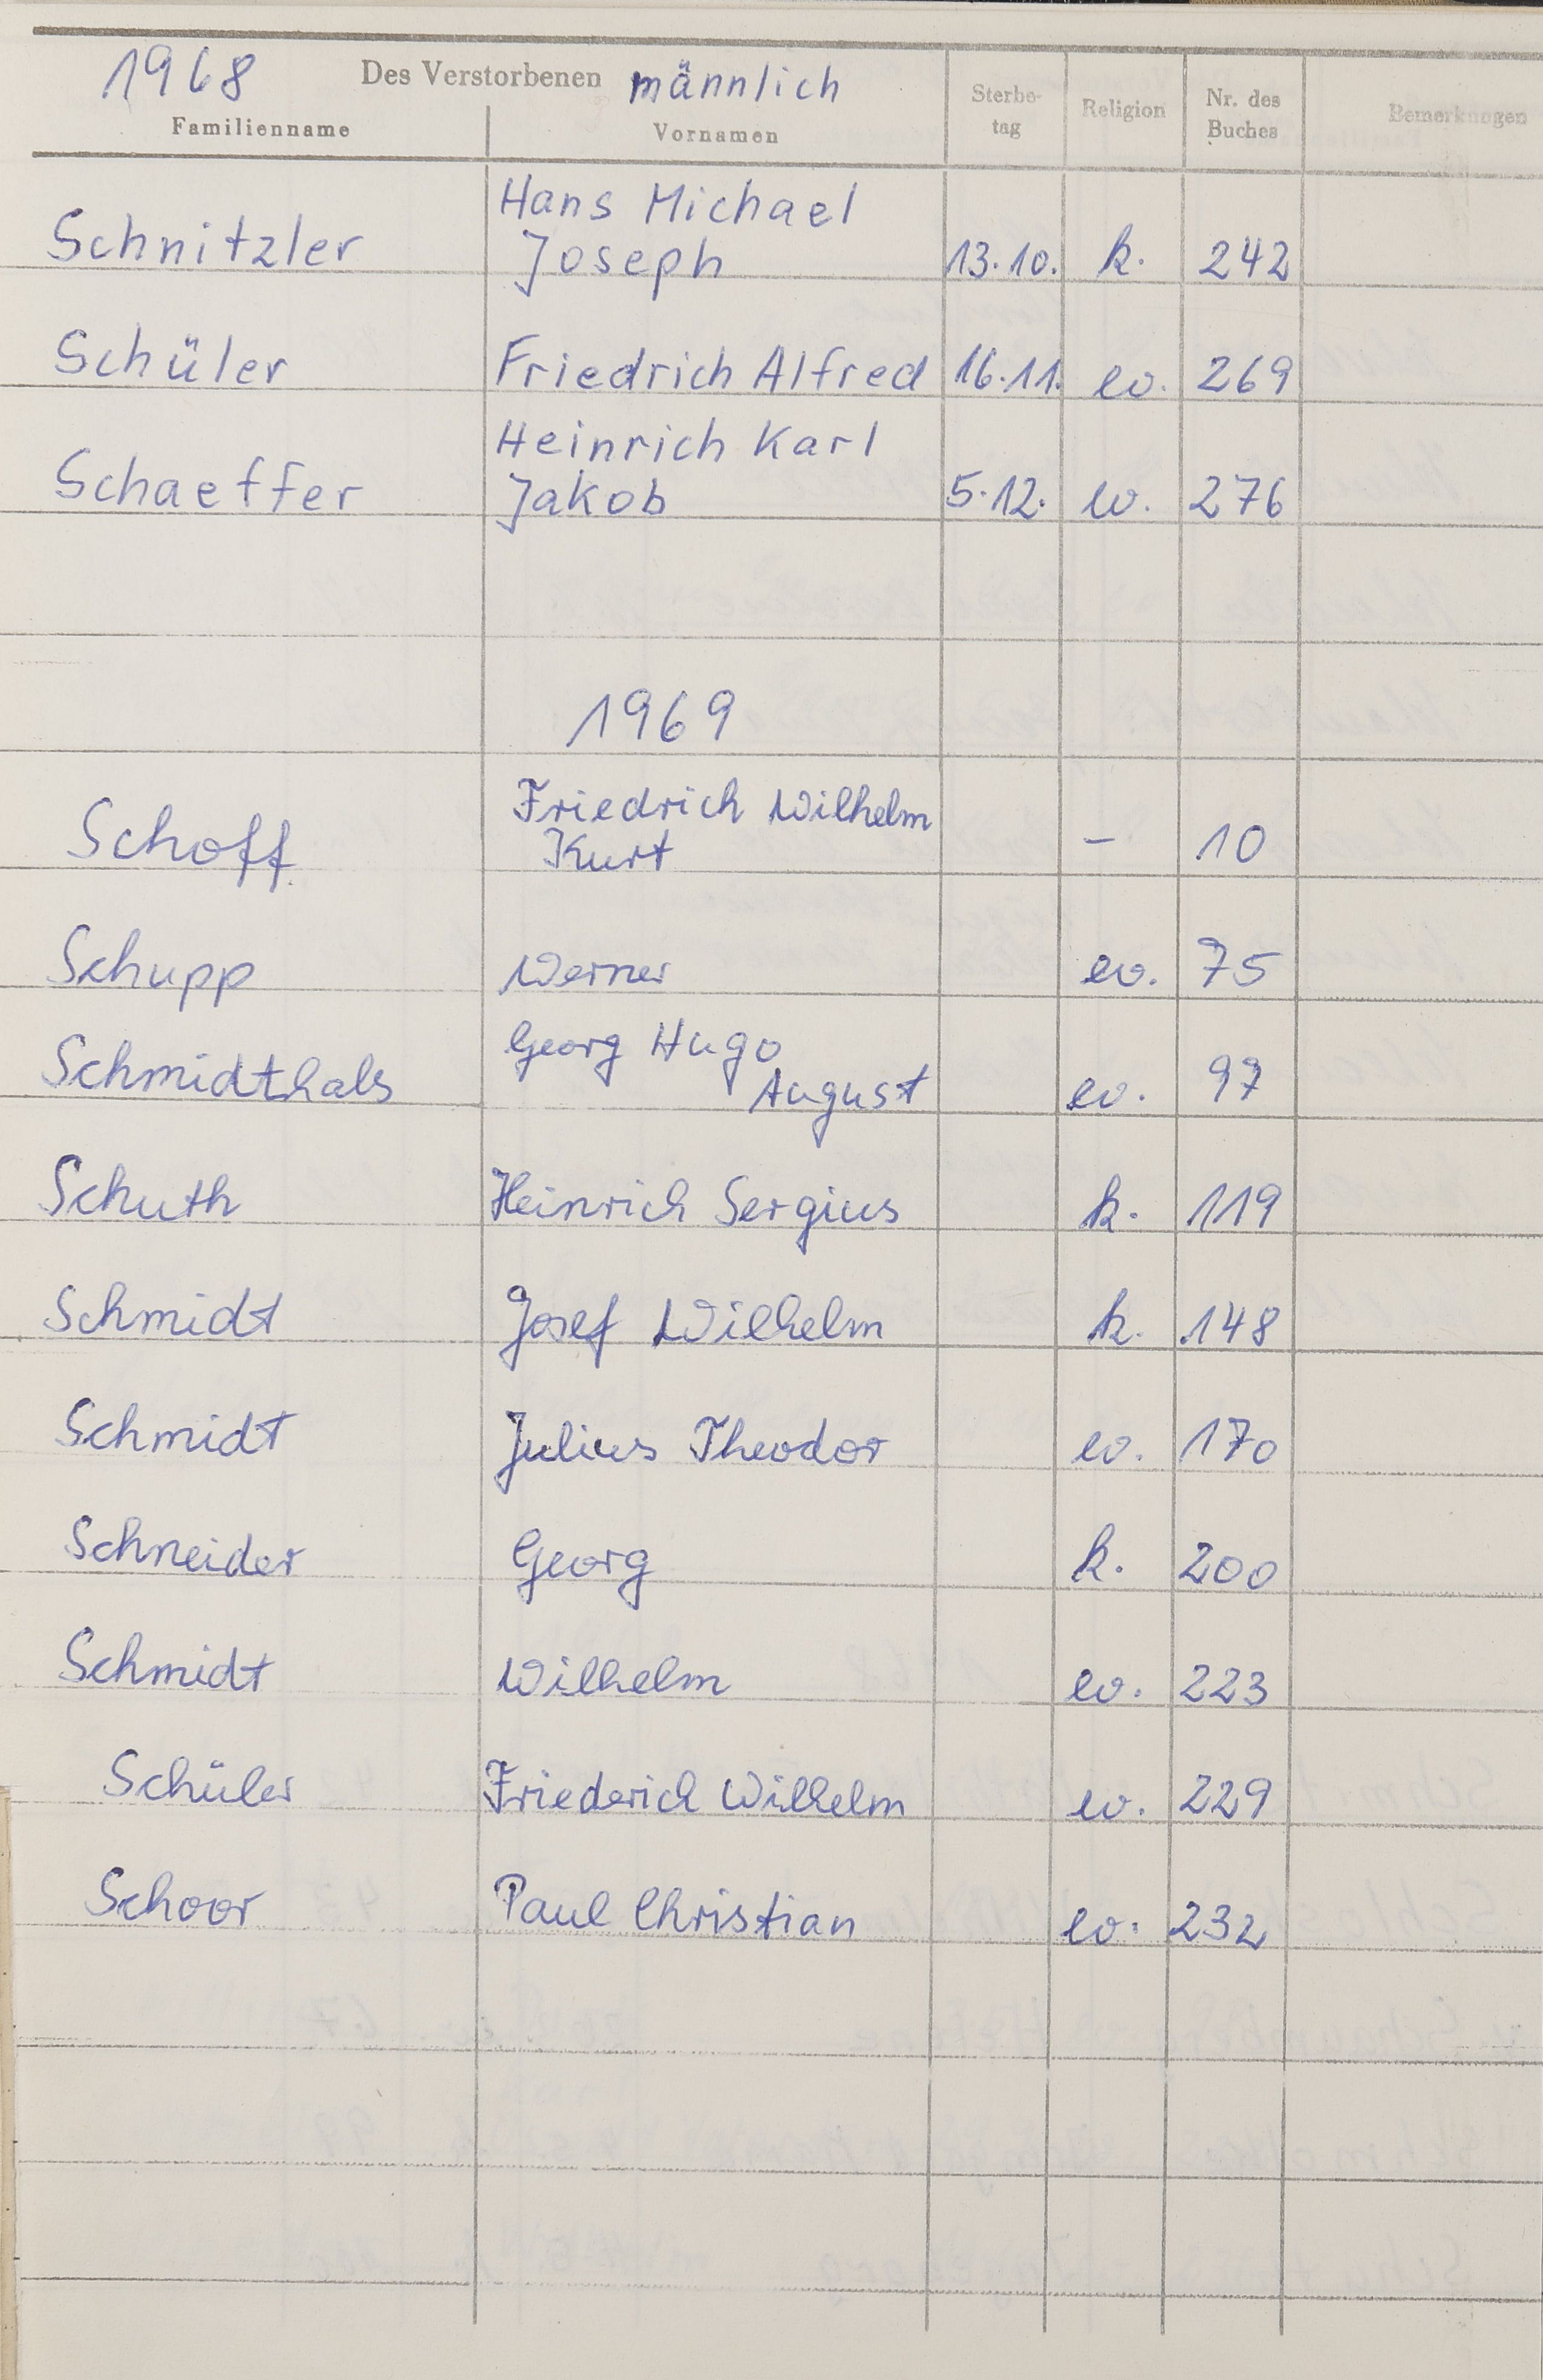 1968 Des Verstorbenen männlich
Familienname Vornamen Sterbe-tag Religion Nr. des Buches Bemerkungen
Hans Michael
Schnitzler Joseph 13.10. k. 242
Schüler Friedrich Alfred 16.11. ev. 269
Heinrich Karl
Schaeffer Jakob 5.12. ev. 276
1969
Friedrich Wilhelm
Schoff Kurt - 10
Schupp Werner ev. 75
Georg Hugo
Schmidthals August ev. 97
Schuth Heinrich Sergius k. 119
Schmidt Josef Wilhelm k. 148
Schmidt Julius Theodor ev. 170
Schneider Georg k. 200
Schmidt Wilhelm ev. 223
Schüler Friederich Wilhelm ev. 229
Schoor Paul Christian ev. 232